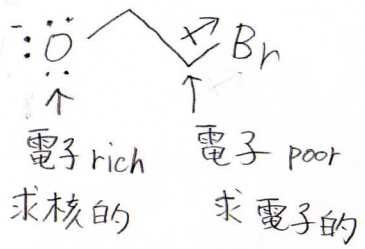 O Br
電子 rich 電子 poor
求核的 求電子的